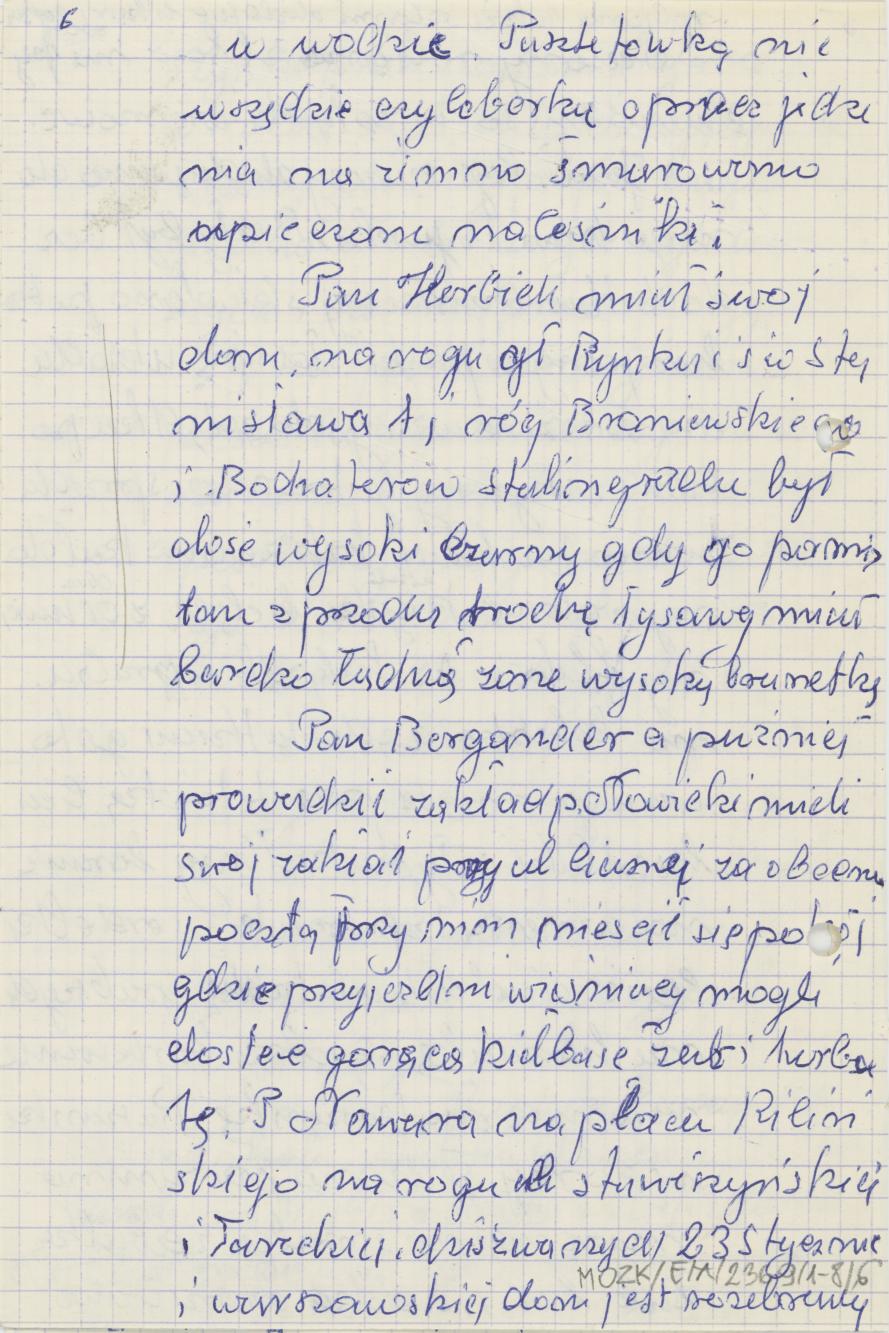 6
w wodkie. Pusztetówką nie
wszędzie czyloborką oprócz jedze
nia na zimno smarowano
wypieczone naleśniki
Pan Herbich miał swoj
dom, na rogu Rynku i św Sta
nisława tj róg Broniewskiego
i Bochaterów Stalingradu był
dość wysoki czarny gdy go pamię
tam z przodu trochę łysawy miał
bardzo ładną zone wysoką brunetkę
Pan Bergander a puźniej
prowadził zakład p. Nawicki mieli
swoj zakład przy ul licznej za obecną
pocztą przy nim mieścił się pokój
gdzie przyjezdni wieśniacy mogli
dostać gorącą kiełbase żur i herba
tę. P Nawara na placu Kiliń
skiego na rogu ul stawiszyńskiej
i Tareckiej. dziś zwanych 23 Stycznia
MOZK/EM/2369/1-8/6
i warszawskiej dom jest rozebrany